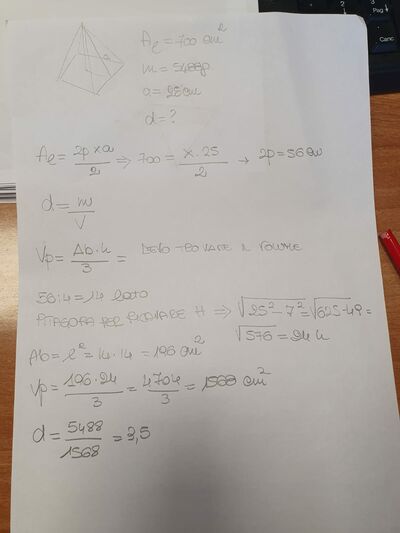 Aℓ = 700 cm²
m = 5488g
a = 25 cm
d = ?
Aℓ = 2p x a / 2 ⇒ 700 = x · 25 / 2 → 2p = 56 cm
d = m / V
Vp = Ab · h / 3 = DEVO TROVARE IL VOLUME
56 : 4 = 14 lato
PITAGORA PER TROVARE H ⇒ √25² - 7² = √625 - 49 =
√576 = 24 h
Ab = ℓ² = 14 · 14 = 196 cm²
Vp = 196 · 24 / 3 = 4704 / 3 = 1568 cm²
d = 5488 / 1568 = 3,5
Pag
Canc